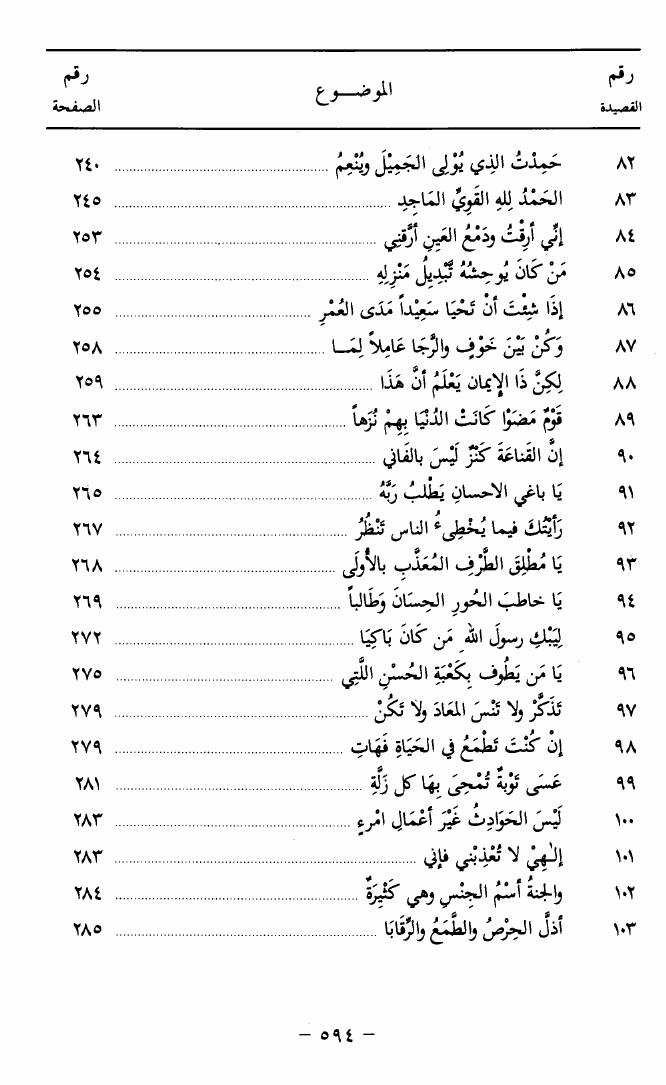 رقم القصيدة الموضـــوع رقم الصفحة
٨٢ حَمِدْتُ الذِي يُوْلِى الجَمِيْلَ ويُنْعِمُ ٢٤٠
٨٣ الحَمْدُ لِلهِ القَوِيِّ المَاجِدِ ٢٤٥
٨٤ إنِّي أرِقْتُ ودَمْعُ العَينِ أرَّقنِي ٢٥٣
٨٥ مَنْ كَانَ يُوحِشُهُ تَّبْدِيلُ مَنْزِلِهِ ٢٥٤
٨٦ إذَا شِئْتَ أنْ تَحْيَا سَعِيْداً مَدَى العُمْرِ ٢٥٥
٨٧ وَكُنْ بَيْنَ خَوْفٍ والرَّجَا عَامِلاً لِمَـا ٢٥٨
٨٨ لكِنَّ ذَا الإِيمان يَعْلَمُ أنَّ هَذَا ٢٥٩
٨٩ قَوْمٌ مَضَوْا كَانَتْ الدُنْيَا بِهِمْ نُزَهاً ٢٦٣
٩٠ إنَّ القَناعَةَ كَنْزٌ لَيْسَ بالفَاني ٢٦٤
٩١ يَا باغي الاحسانِ يَطْلبُ رَبَّهُ ٢٦٥
٩٢ رَأيْتُكَ فيما يُخْطِىءُ الناس تَنْظُرُ ٢٦٧
٩٣ يَا مُطْلِقَ الطَّرْفِ المُعَذَّبِ بالأُولَى ٢٦٨
٩٤ يَا خاطبَ الحُورِ الحِسَانَ وَطَالباً ٢٦٩
٩٥ لِيَبْكِ رسولَ اللهِ مَن كَانَ بَاكِيَا ٢٧٢
٩٦ يَا مَن يَطُوف بِكَعْبَةِ الحُسْنِ اللَّتِي ٢٧٥
٩٧ تَذَكَّرْ ولا تَنْسَ المَعَادَ ولا تَكُنْ ٢٧٩
٩٨ إنْ كُنْتَ تَطْمَعُ في الحَيَاةِ فَهَاتِ ٢٧٩
٩٩ عَسَى تَوْبةٌ تُمْحِىَ بِهَا كل زَلَّةِ ٢٨١
١٠٠ لَيْسَ الحَوَادِثُ غَيْرَ أعْمَالِ امْرءٍ ٢٨٣
١٠١ إلهِيْ لا تُعْذِبْني فإني ٢٨٣
١٠٢ والجنةُ أسْمُ الجِنْسِ وهي كَثِيرَةٌ ٢٨٤
١٠٣ أذلَّ الحِرْصُ والطَّمَعُ والرِّقَابَا ٢٨٥
– ٥٩٤ –